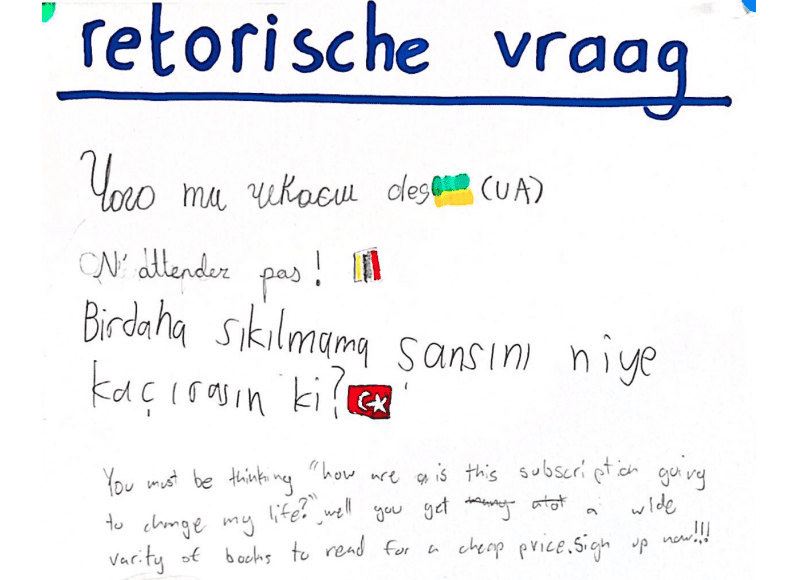 retorische vraag
Чого ти чекаєш (UA)
N'attendez pas!
Birdaha sıkılmama şansını niye
kaçırasın ki?
You must be thinking "how is this subscription going
to change my life?", well you get many alot a wide
varity of books to read for a cheap price. Sign up now!!!